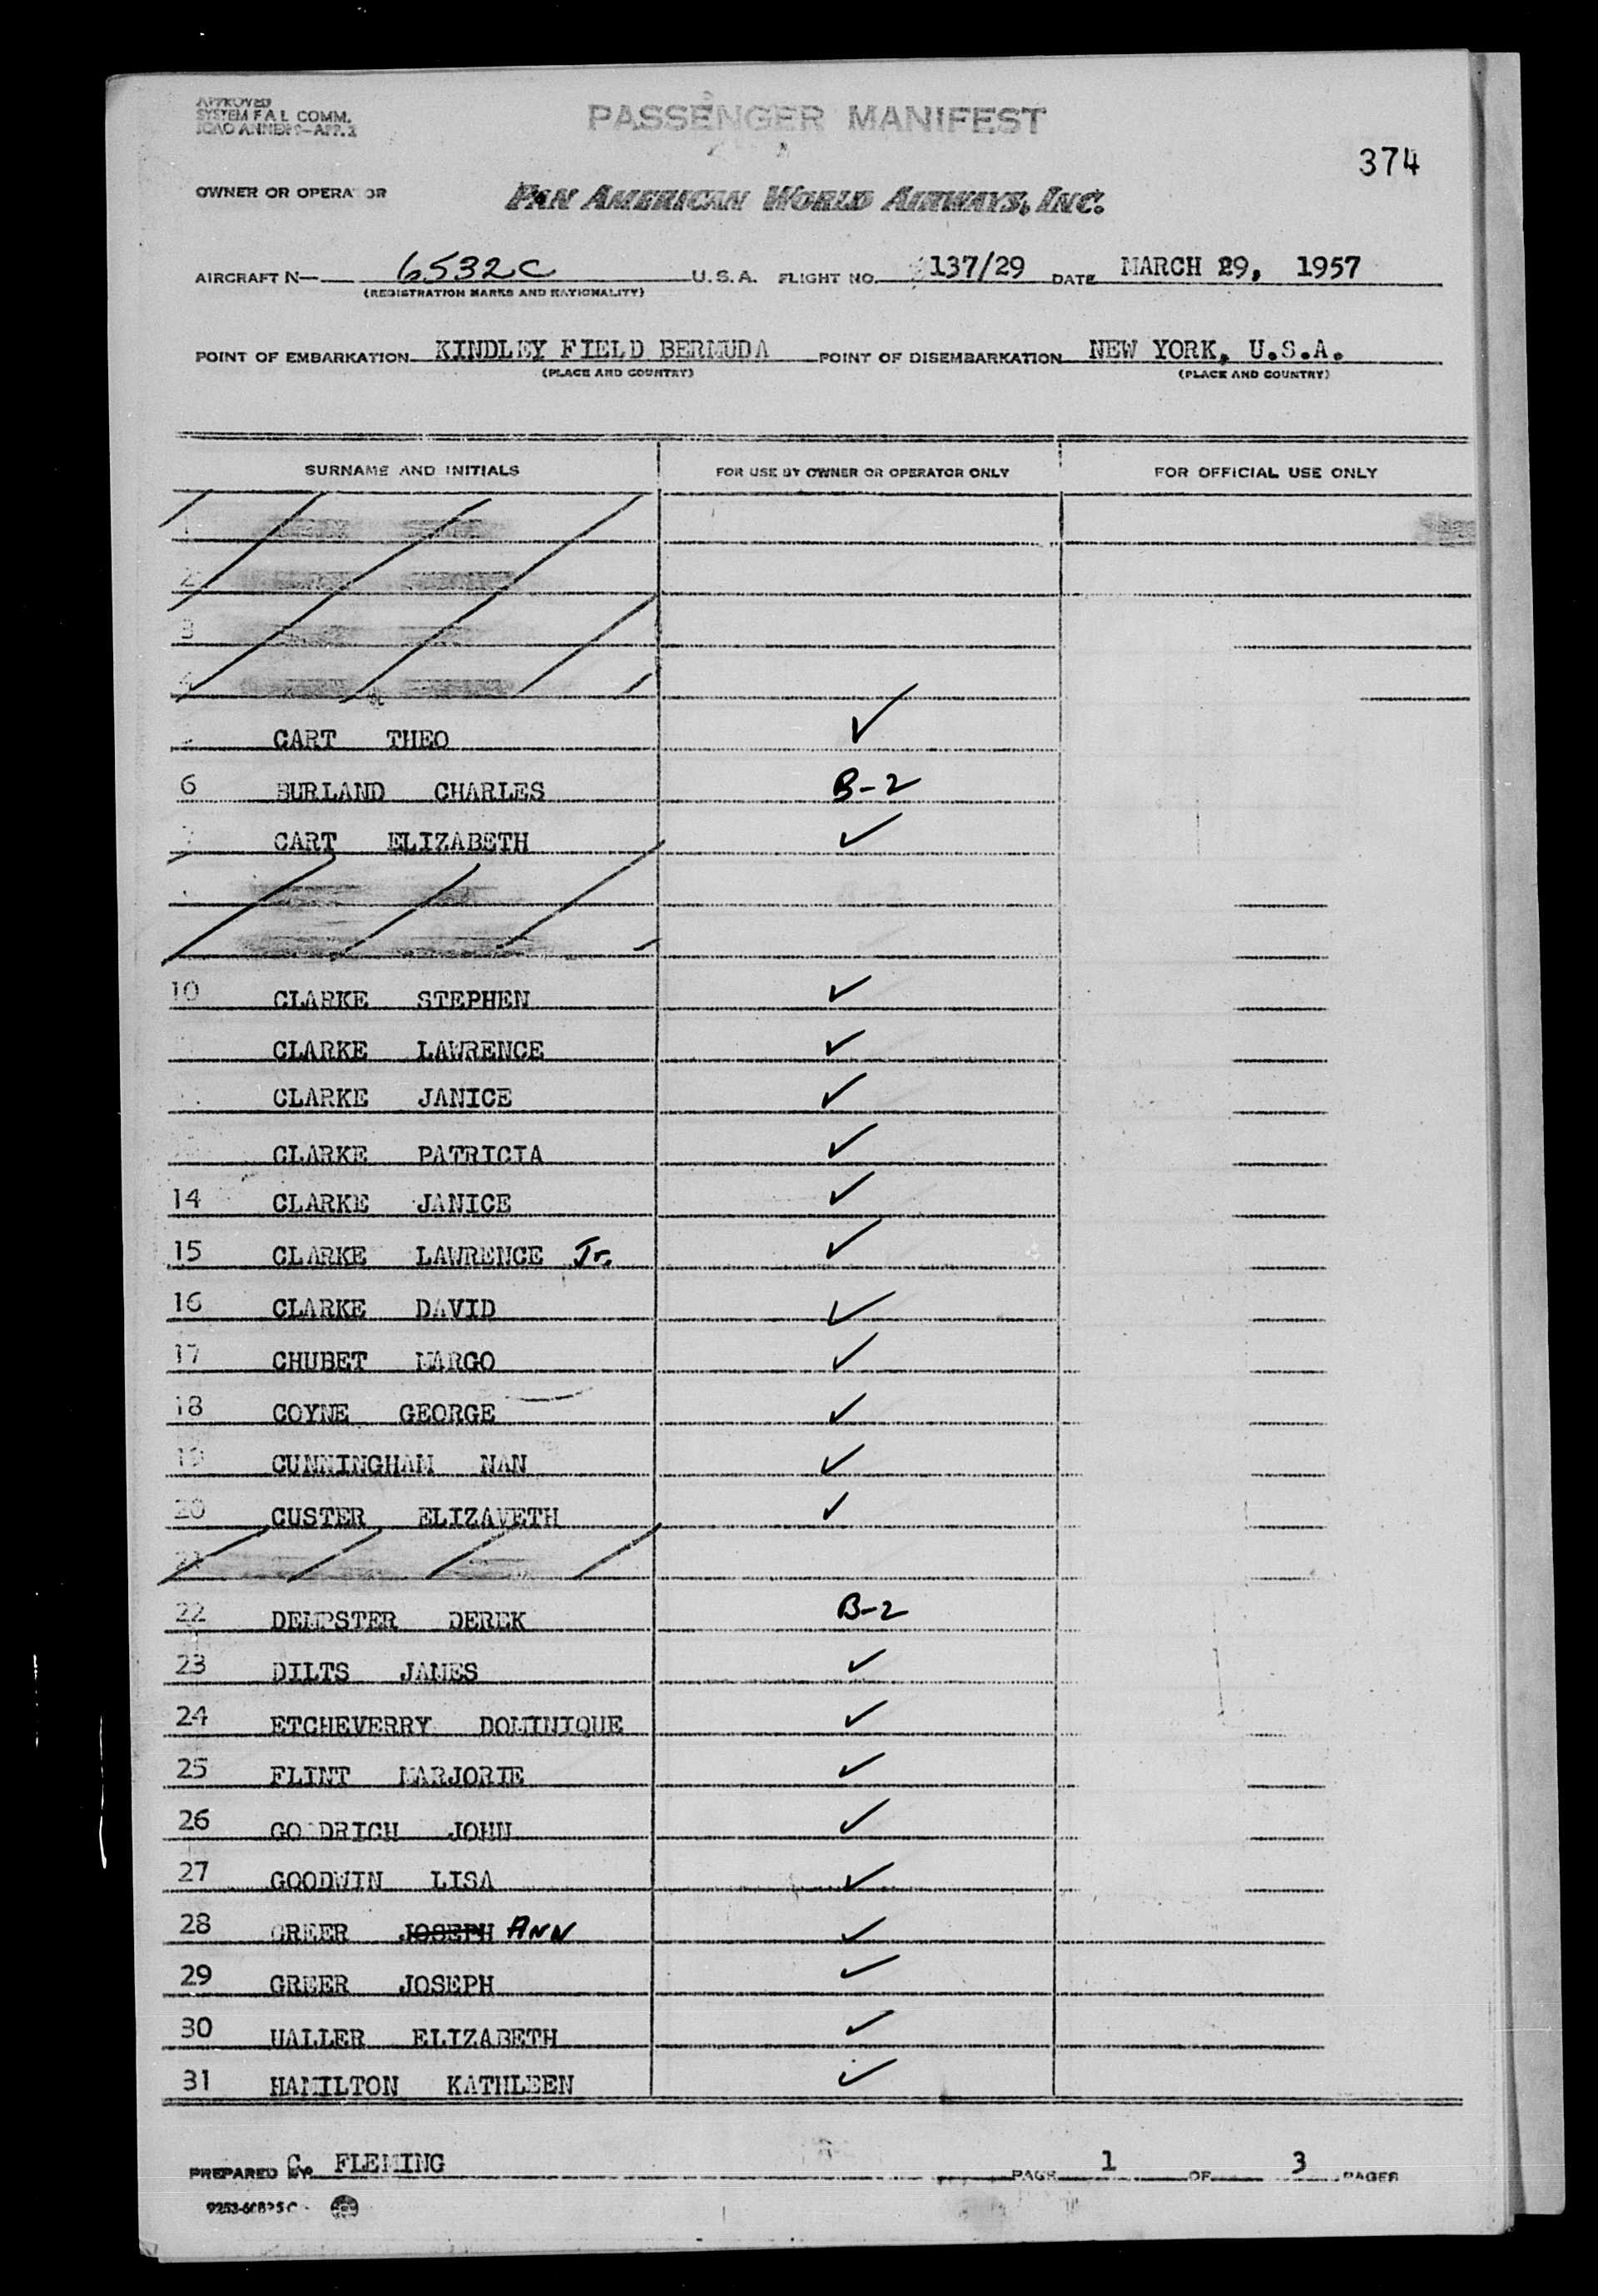 APPROVED
SYSTEM F A L COMM.
ICAO ANNEX 9-APP. 3
PASSENGER MANIFEST
374
OWNER OR OPERATOR PAN AMERICAN WORLD AIRWAYS, INC.
AIRCRAFT N— 6532C U.S.A. FLIGHT NO. 137/29 DATE MARCH 29, 1957
(REGISTRATION MARKS AND NATIONALITY)
POINT OF EMBARKATION KINDLEY FIELD BERMUDA POINT OF DISEMBARKATION NEW YORK, U.S.A.
(PLACE AND COUNTRY) (PLACE AND COUNTRY)
SURNAME AND INITIALS FOR USE BY OWNER OR OPERATOR ONLY FOR OFFICIAL USE ONLY
1
2
3
4
CART THEO ✓
6 BURLAND CHARLES B-2
7 CART ELIZABETH ✓
10 CLARKE STEPHEN ✓
CLARKE LAWRENCE ✓
CLARKE JANICE ✓
CLARKE PATRICIA ✓
14 CLARKE JANICE ✓
15 CLARKE LAWRENCE Jr. ✓
16 CLARKE DAVID ✓
17 CHUBET MARGO ✓
18 COYNE GEORGE ✓
19 CUNNINGHAM NAN ✓
20 CUSTER ELIZAVETH ✓
21
22 DEMPSTER DEREK B-2
23 DILTS JAMES ✓
24 ETCHEVERRY DOMINIQUE ✓
25 FLINT MARJORIE ✓
26 GO DRICH JOHN ✓
27 GOODWIN LISA ✓
28 GREER JOSEPH ANN ✓
29 GREER JOSEPH ✓
30 HALLER ELIZABETH ✓
31 HAMILTON KATHLEEN ✓
PREPARED BY C. FLEMING PAGE 1 OF 3 PAGES